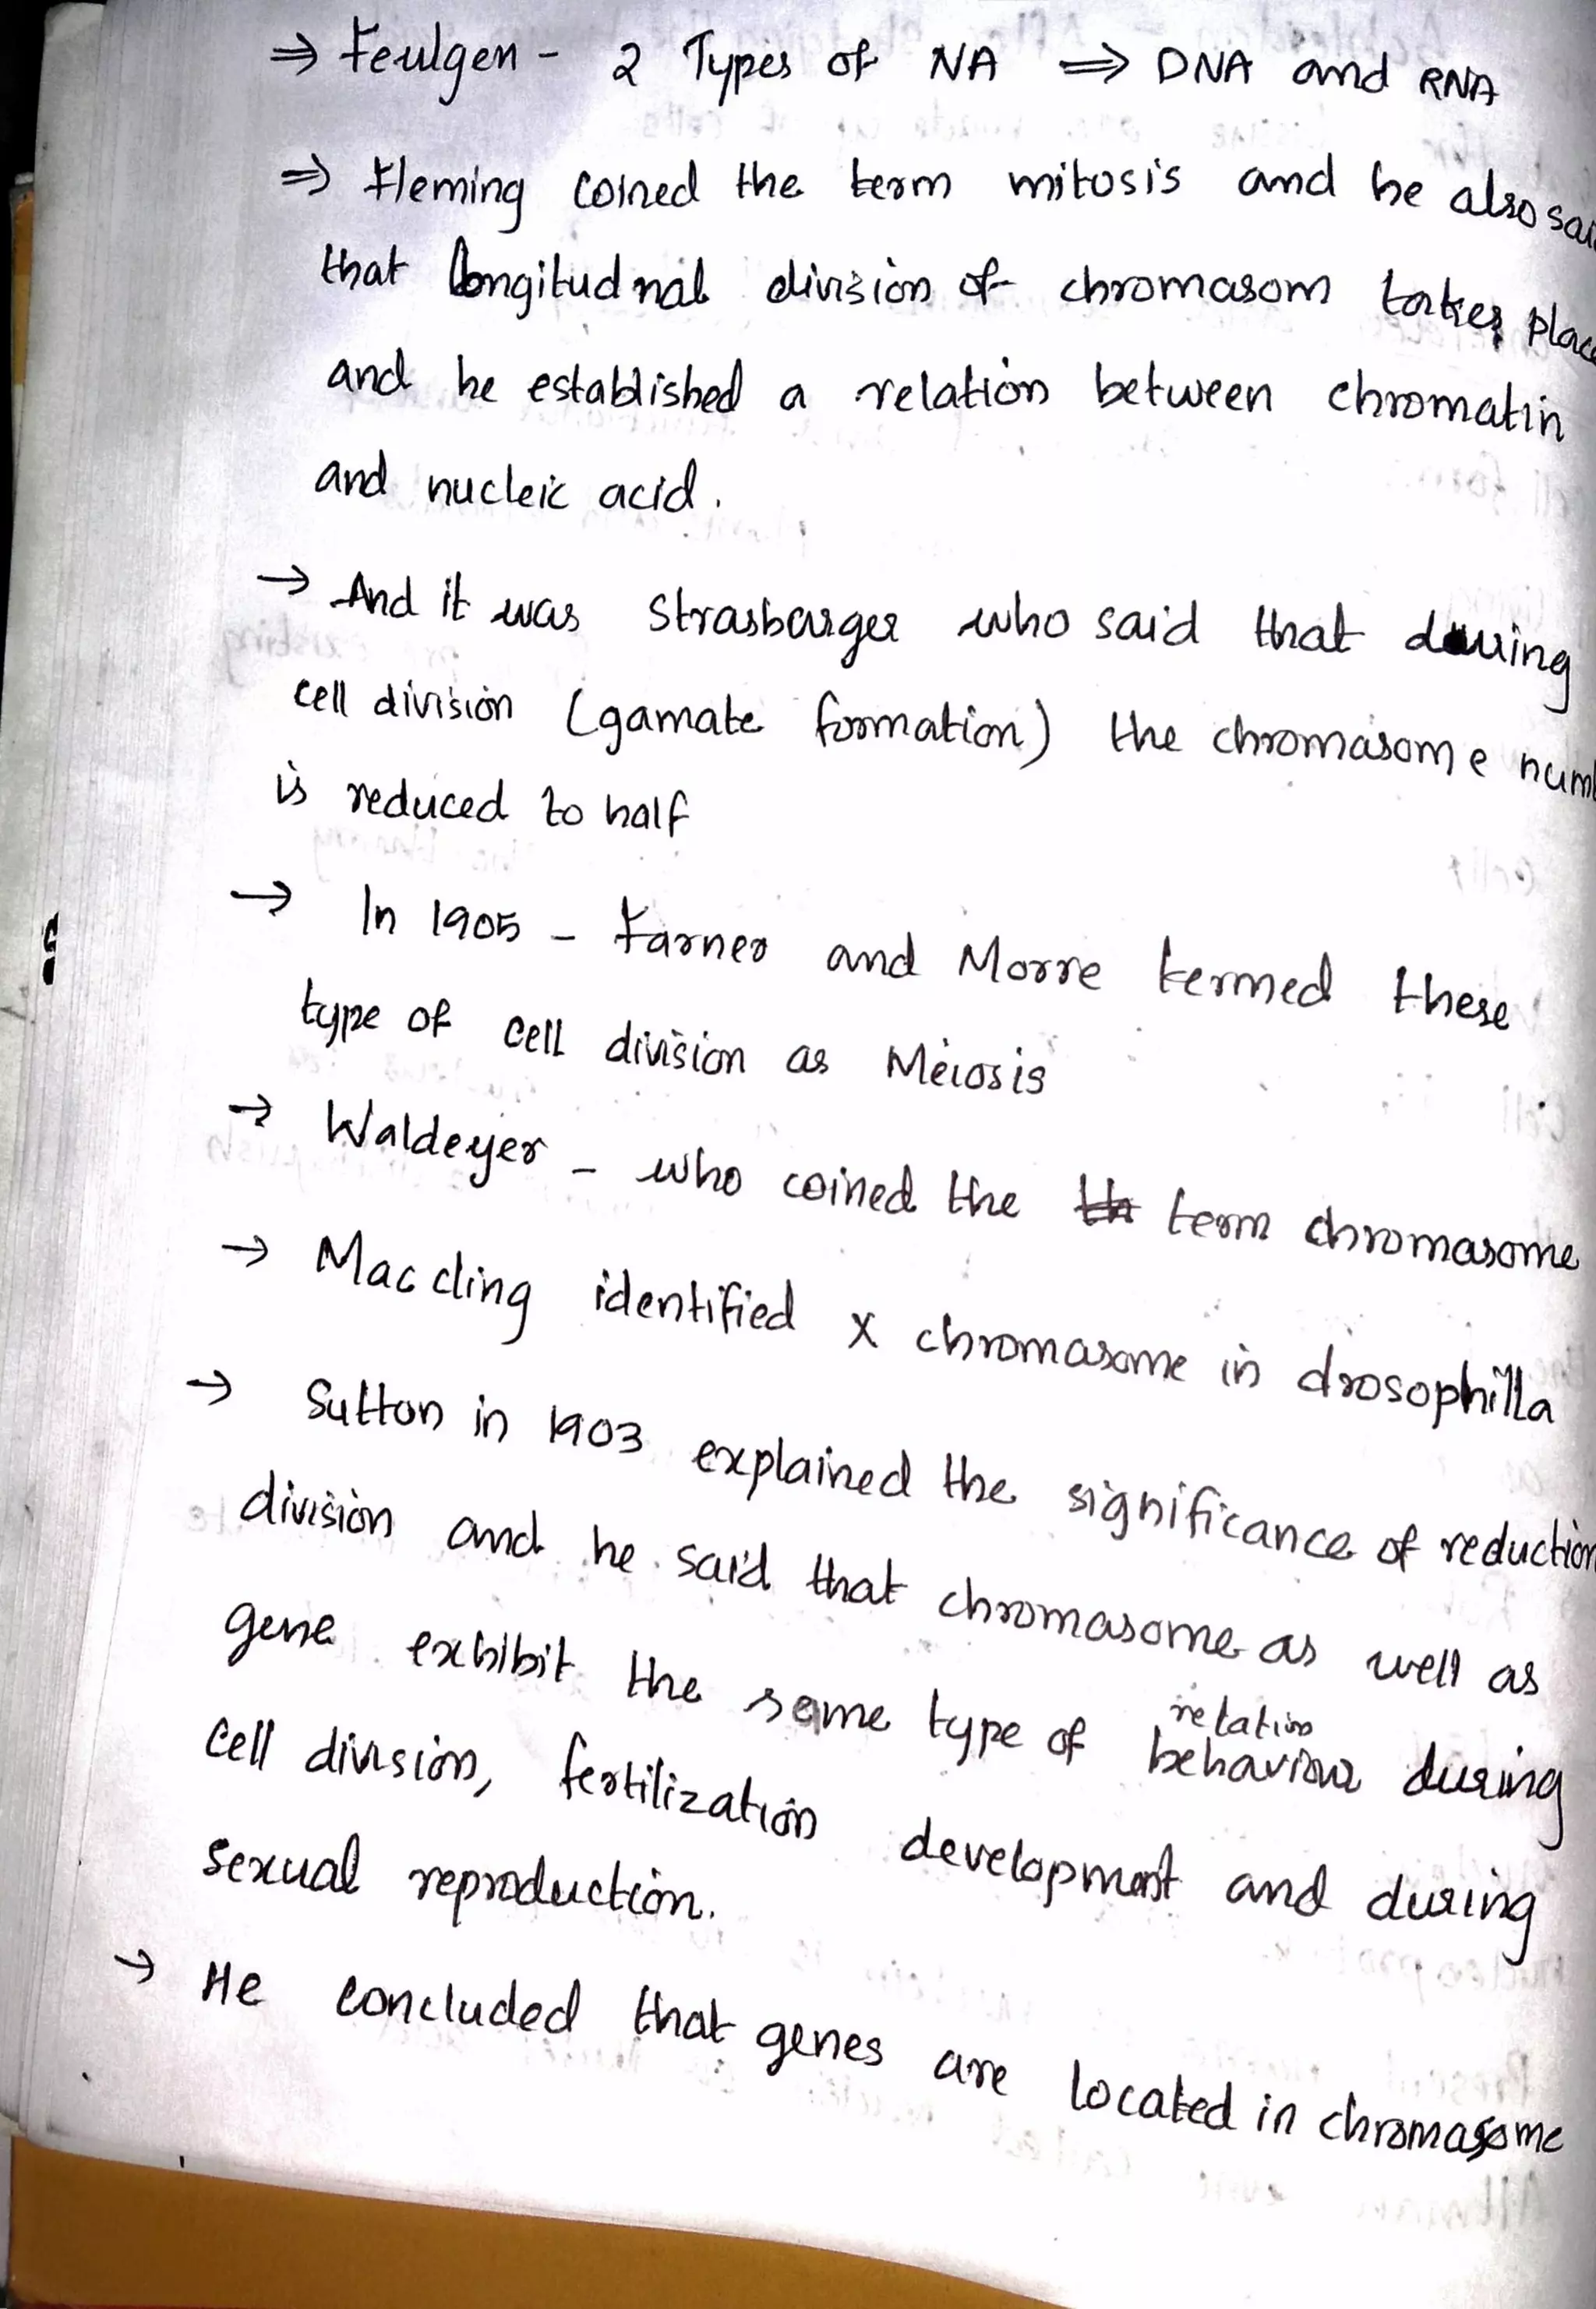 ⇒ Feulgen - 2 Types of NA ⇒ DNA and RNA
⇒ Fleming coined the term mitosis and he also sai
that longitudnal division of chromasom takes place
and he established a relation between chromatin
and nucleic acid.
→ And it was Strasbarger who said that during
cell division (gamate formation) the chromasome num
is reduced to half
→ In 1905 - Farner and Morre termed these
type of cell division as Meiosis
→ Waldeyer - who coined the term chromasome
→ Mac cling identified x chromasome in drosophilla
→ Sutton in 1903 explained the significance of reduction
division and he said that chromasome as well as
gene exhibit the same type of relation behaviour during
cell division, fertilization development and during
sexual reproduction.
→ He concluded that genes are located in chromasome